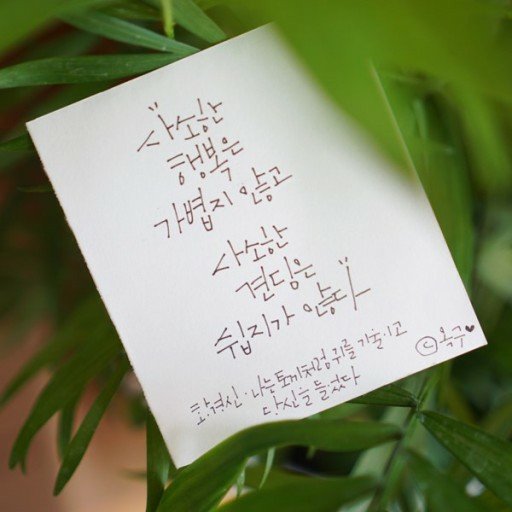 "사소한
행복은
가볍지 않고
사소한
견딤은
쉽지가 않다"
황경신·나는 토끼처럼 귀를 기울이고
당신을 들었다
ⓒ옥구♥